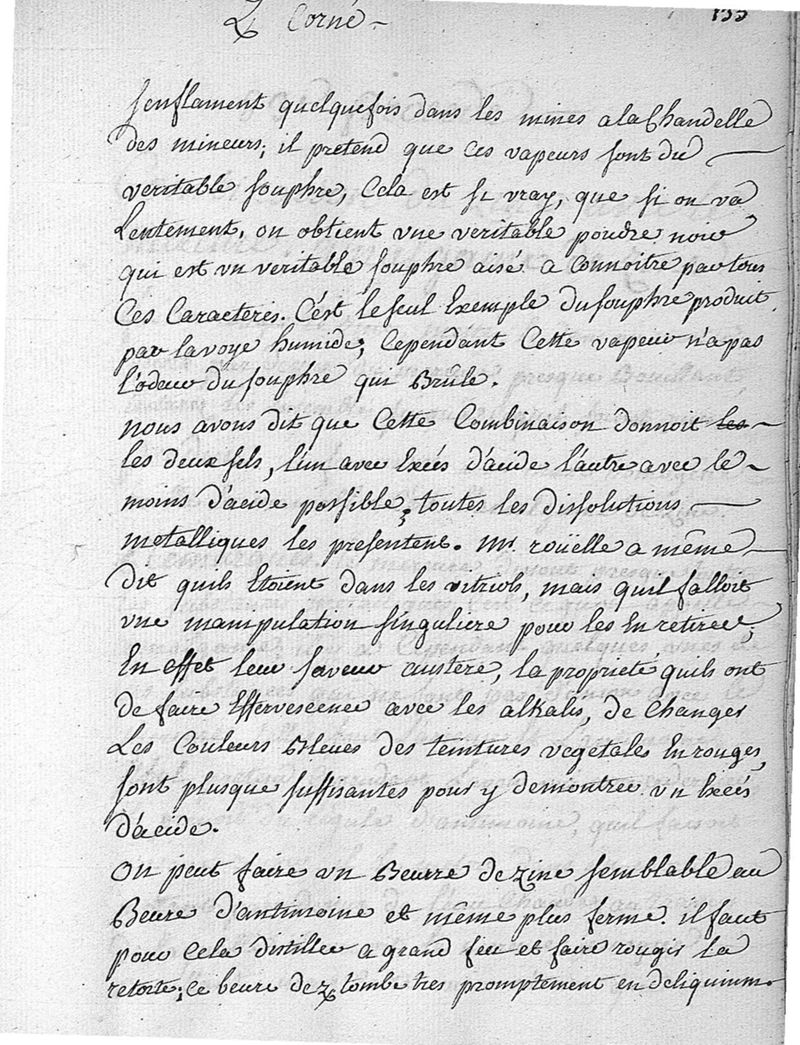 Z Corné 155
senflament quelquefois dans les mines a la Chandelle
des mineurs; il pretend que ces vapeurs sont du
veritable souphre, Cela est si vray, que si on va
Lentement, on obtient vne veritable poudre noire
qui est vn veritable souphre aisé a connoitre par tous
Ces Caracteres. C'est le seul Exemple du souphre produit
par la voye humide; Cependant Cette vapeur n'a pas
l'odeur du souphre qui Brûle.
nous avons dit que Cette Combinaison donnoit les
les deux sels, l'un avec Excés d'acide l'autre avec le
moins d'acide possible; toutes les dissolutions
metalliques les presentent. Mr. roüelle a même
dit quils Etoient dans les vitriols, mais quil falloit
vne manipulation singuliere pour les En retirer,
En effet leur saveur austere, la propriete quils ont
de faire Effervescence avec les alkalis, de Changer
Les Couleurs Bleues des teintures vegetales En rouges,
sont plusque suffisantes pour y demontrer vn Excés
d'acide.
On peut faire vn Beurre de zinc semblable au
Beure d'antimoine et même plus ferme. il faut
pour Cela distiller a grand feu et faire rougir La
retorte; ce beure de z tombe tres promptement en deliquium